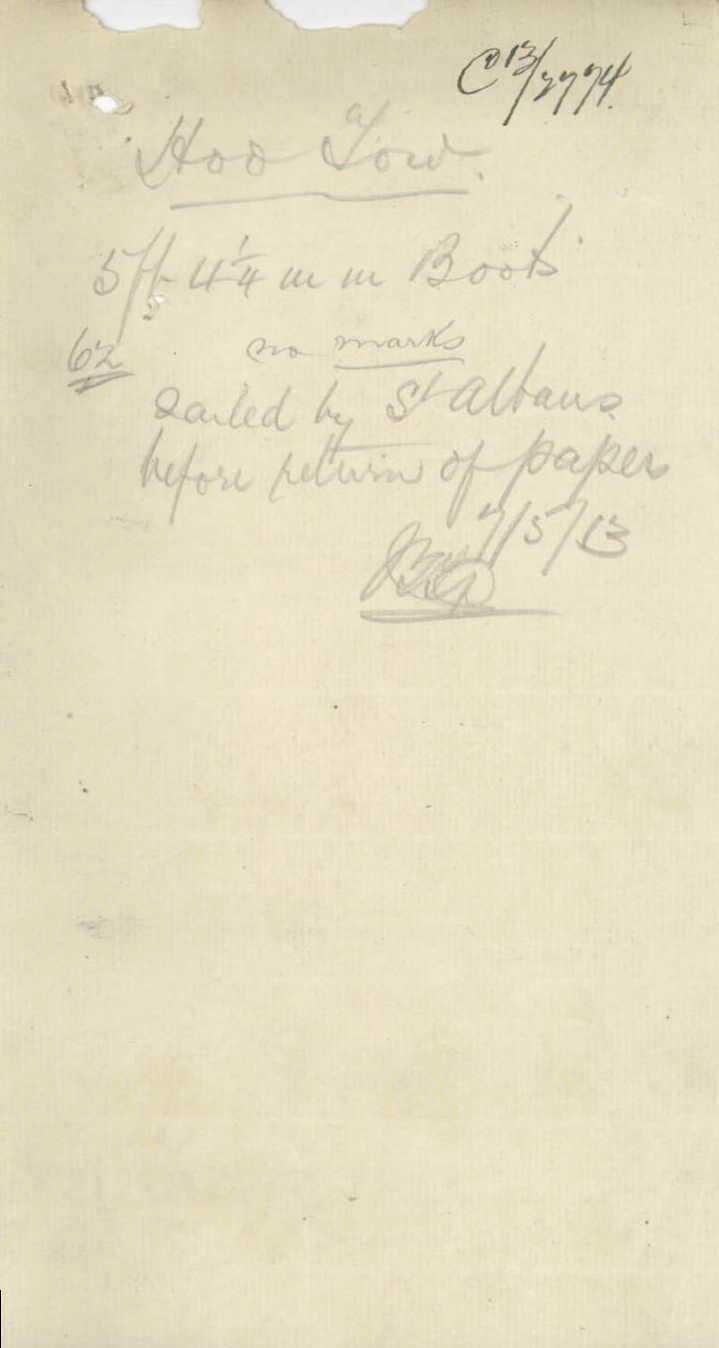 C13/2774
Hoo Tow.
5ft 4¼ in in Boots
62 no marks
sailed by St Albans
before return of paper
7/5/13